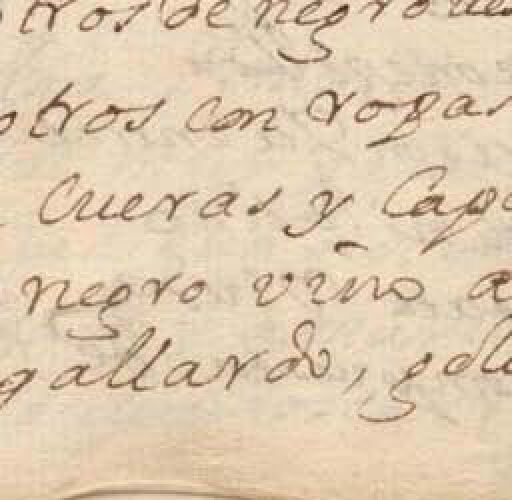 otros de negro
otros con ropas
Cueras y Capa
negro vino a
gallardo,